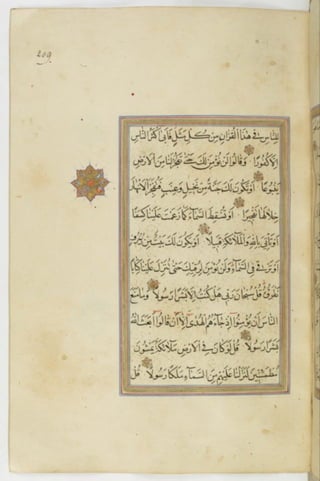 209
للناس في هذا القرآن من كل مثل فأبى أكثر الناس
إلا كفورا وقالوا لن نؤمن لك حتى تفجر لنا من الأرض
ينبوعا أو تكون لك جنة من نخيل وعنب فتفجر الأنهار
خلالها تفجيرا أو تسقط السماء كما زعمت علينا كسفا
أو تأتي بالله والملائكة قبيلا أو يكون لك بيت من زخرف
أو ترقى في السماء ولن نؤمن لرقيك حتى تنزل علينا كتابا
نقرؤه قل سبحان ربي هل كنت إلا بشرا رسولا وما منع
الناس أن يؤمنوا إذ جاءهم الهدى إلا أن قالوا أبعث الله
بشرا رسولا قل لو كان في الأرض ملائكة يمشون
مطمئنين لنزلنا عليهم من السماء ملكا رسولا قل